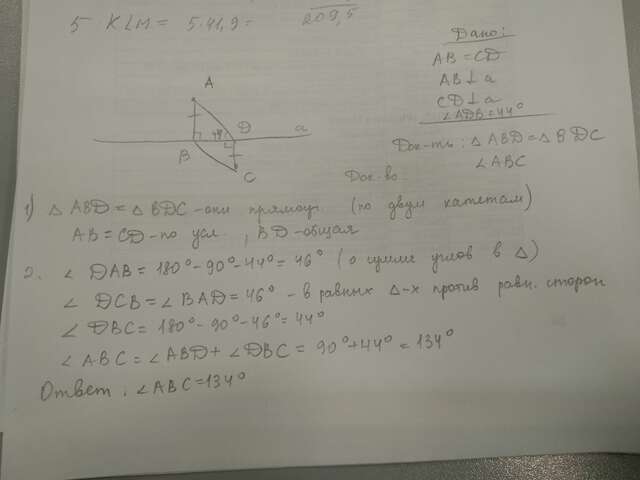 5 KLM = 5·41,9 =
209,5
Дано:
AB = CD
AB ⊥ a
CD ⊥ a
∠ADB = 44°
A
44°
D
a
B
C
Док-ть: △ABD = △BDC
∠ABC
Док-во
1) △ABD = △BDC - они прямоуг. (по двум катетам)
AB = CD - по усл., BD - общая
2. ∠DAB = 180° - 90° - 44° = 46° (о сумме углов в △)
∠DCB = ∠BAD = 46° - в равных △-х против равн. сторон
∠DBC = 180° - 90° - 46° = 44°
∠ABC = ∠ABD + ∠DBC = 90° + 44° = 134°
Ответ: ∠ABC = 134°